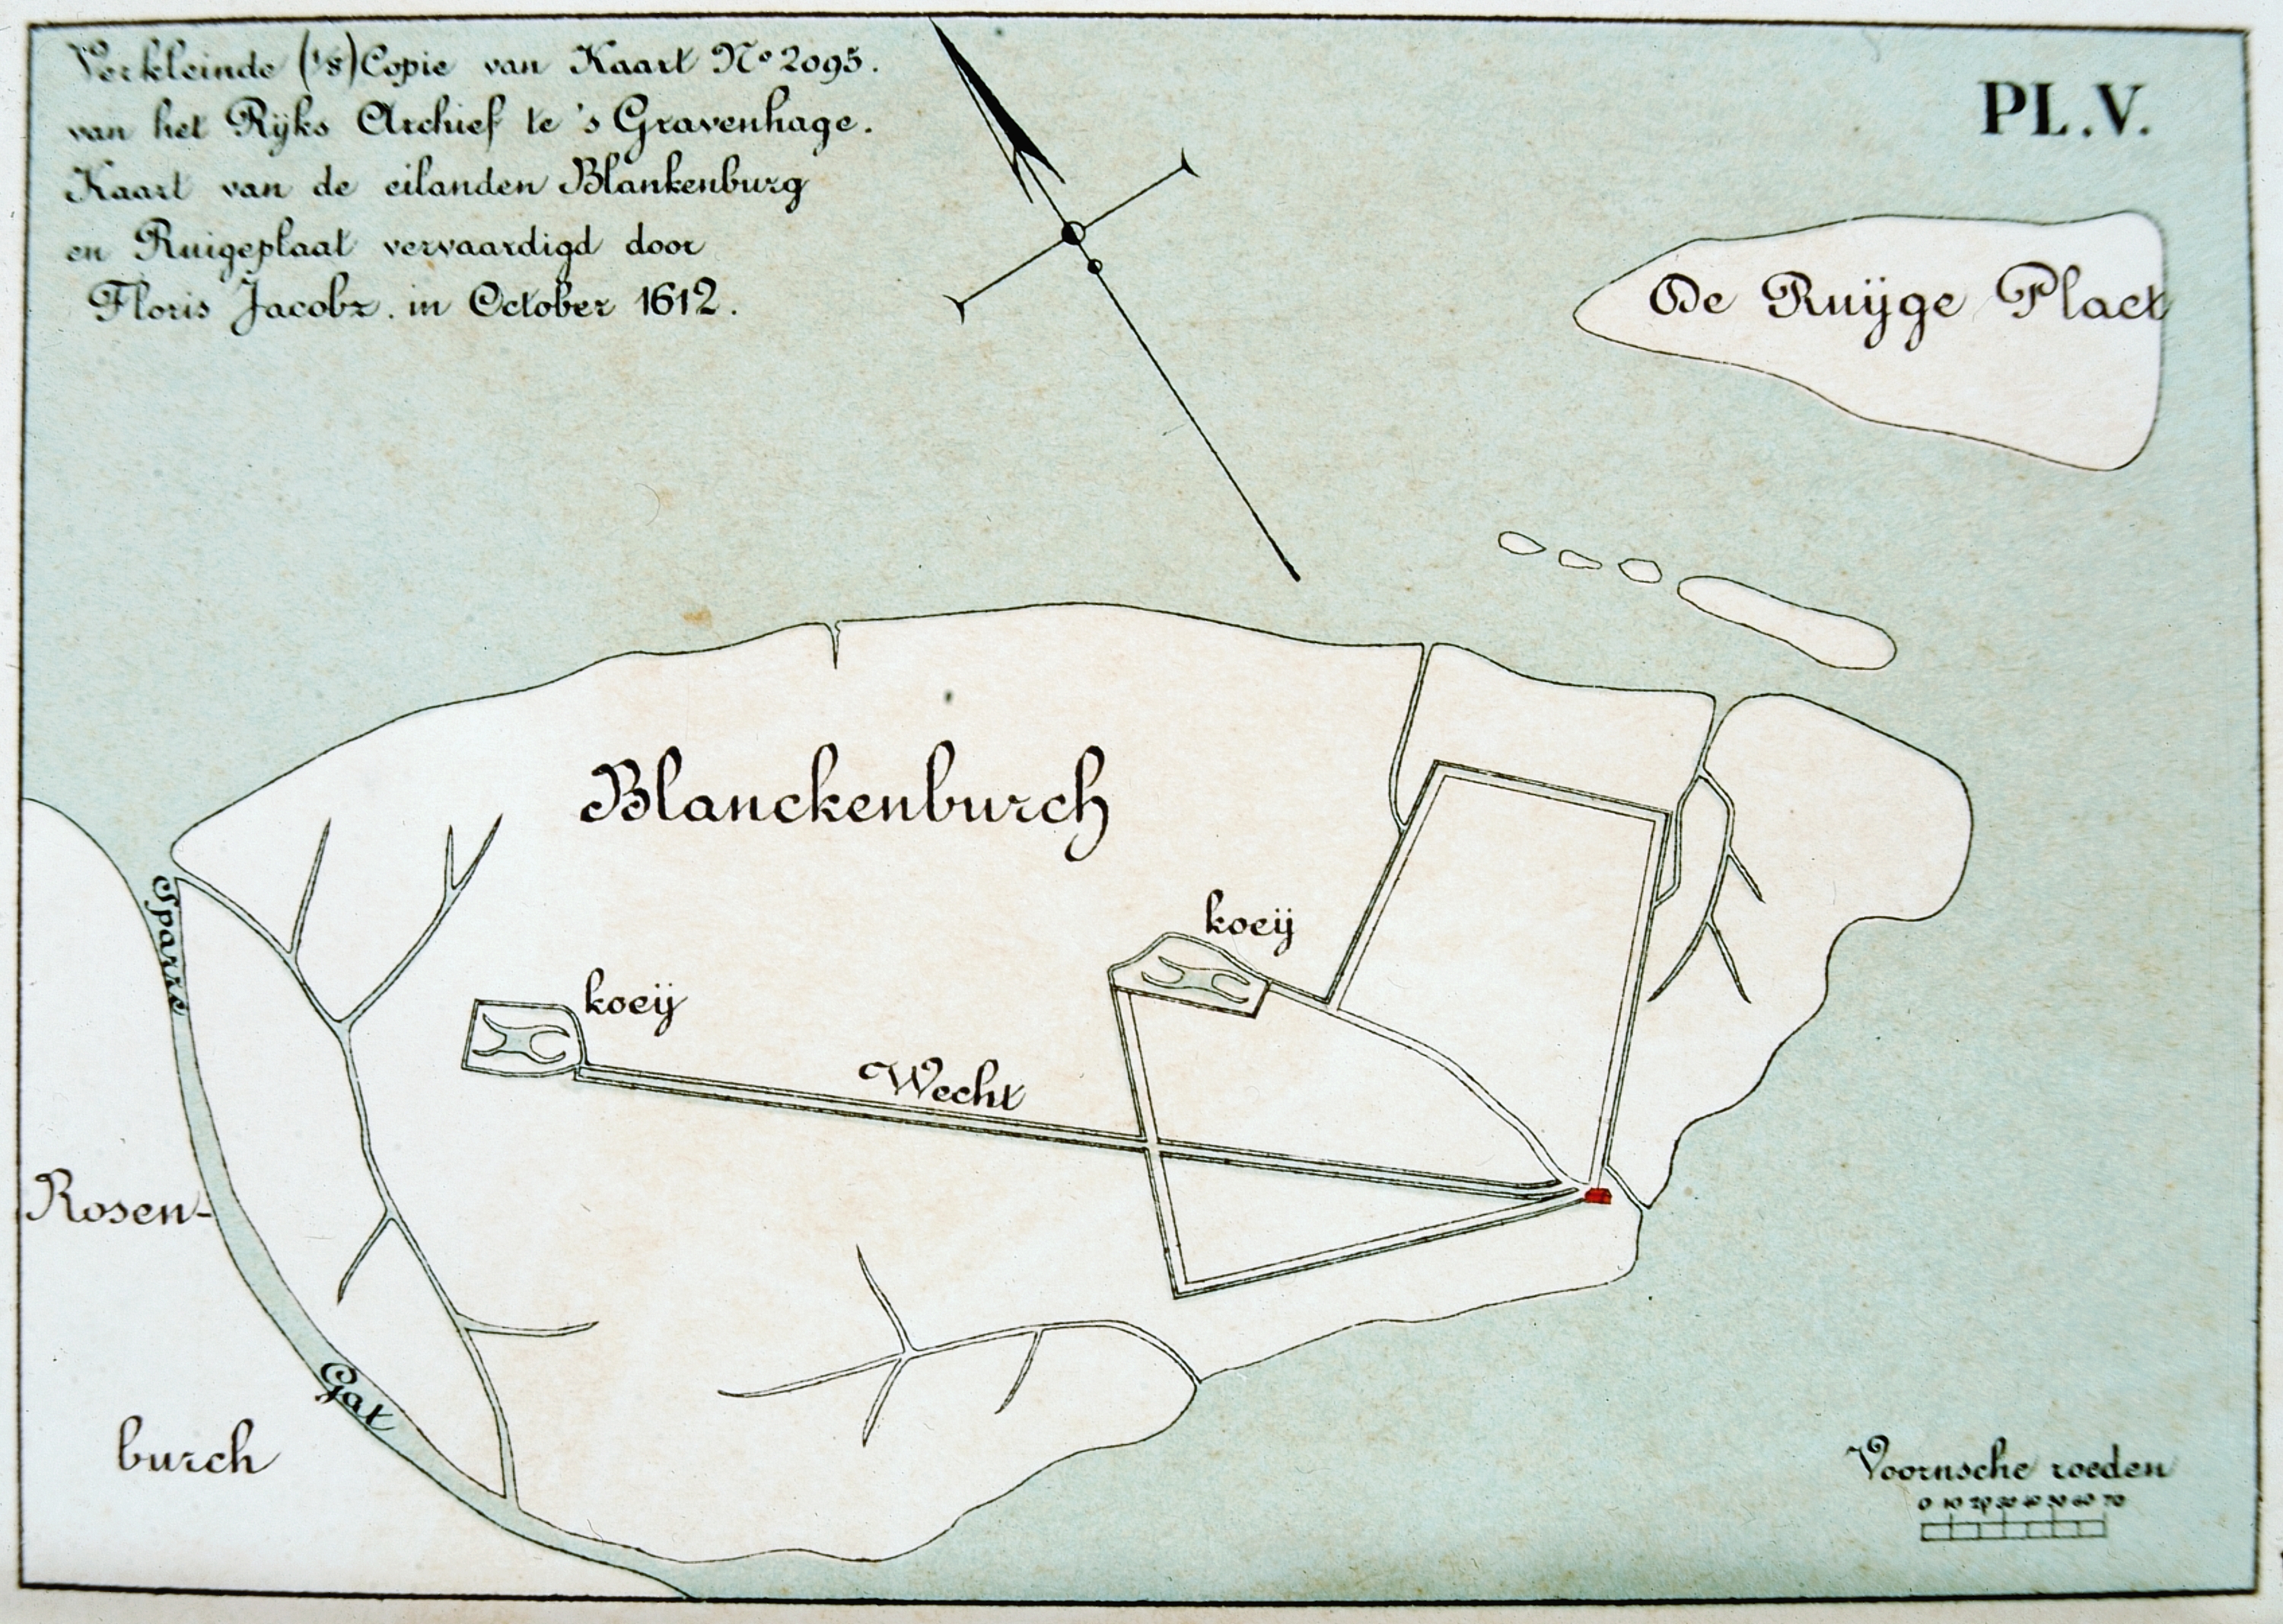 Verkleinde (1/8) Copie van Kaart No 2095.
van het Rijks Archief te 's Gravenhage.
Kaart van de eilanden Blankenburg
en Ruigeplaat vervaardigd door
Floris Jacobz. in October 1612.
PL.V.
De Ruijge Plaet
Blanckenburch
koeij
koeij
Wecht
Sparre
Gat
Rosen-
burch
Voornsche roeden
0 10 20 30 40 50 60 70